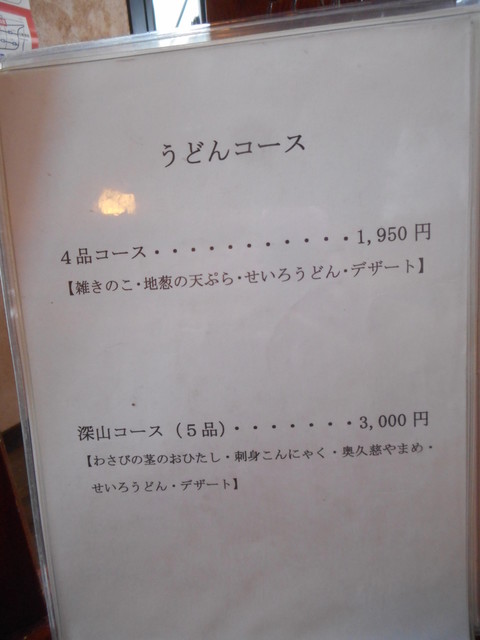 うどんコース
4品コース・・・・・・・・・・・1,950円
【雑きのこ・地葱の天ぷら・せいろうどん・デザート】
深山コース（5品）・・・・・・・3,000円
【わさびの茎のおひたし・刺身こんにゃく・奥久慈やまめ・
せいろうどん・デザート】